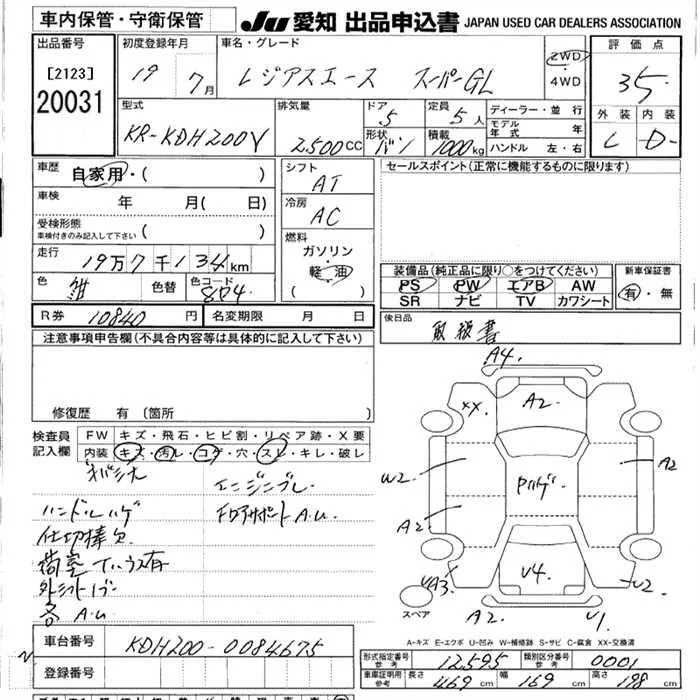 車内保管・守衛保管
JU 愛知 出品申込書 JAPAN USED CAR DEALERS ASSOCIATION
出品番号
[2123]
20031
初度登録年月
19 7月
車名・グレード
レジアスエース スーパーGL
2WD
・
4WD
評価点
3.5
外装 内装
C D-
型式
KR-KDH200V
排気量
2,500cc
ドア
5
形状
バン
定員
5人
積載
1000kg
ディーラー・並行
モデル年式 年
ハンドル 左・右
車歴
自家用・( )
車検
年 月( 日)
受検形態
車検付きのみ記入して下さい
走行
19万7千134km
色
紺
色替
色コード
8P4
シフト
AT
冷房
AC
燃料
ガソリン・
軽油
( )
セールスポイント(正常に機能するものに限ります)
装備品(純正品に限り○をつけてください)
PS PW エアB AW
SR ナビ TV カワシート
新車保証書
有・無
R券 10840円
名変期限 月 日
後日品
取扱書
注意事項申告欄(不具合内容等は具体的に記入して下さい)
修復歴 有 (箇所
検査員
記入欄
FW キズ・飛石・ヒビ割・リペア跡・X要
内装 キズ・汚レ・コゲ・穴・スレ・キレ・破レ
ハンドルハゲ
仕切棒欠
エンジンブレ
FロアサポートA.U
各A.U
A4
XX
A2
W2
A2
A2
V4
XA3
W2
A2
V1
スペア
A-キズ E-エクボ U-凹み W-補修跡 S-サビ C-腐食 XX-交換済
車台番号
KDH200-0084675
登録番号
形式指定番号
参考
12595
類別区分番号
参考
0001
車庫証明用
参考
長さ 469cm
幅 169cm
高さ 198cm